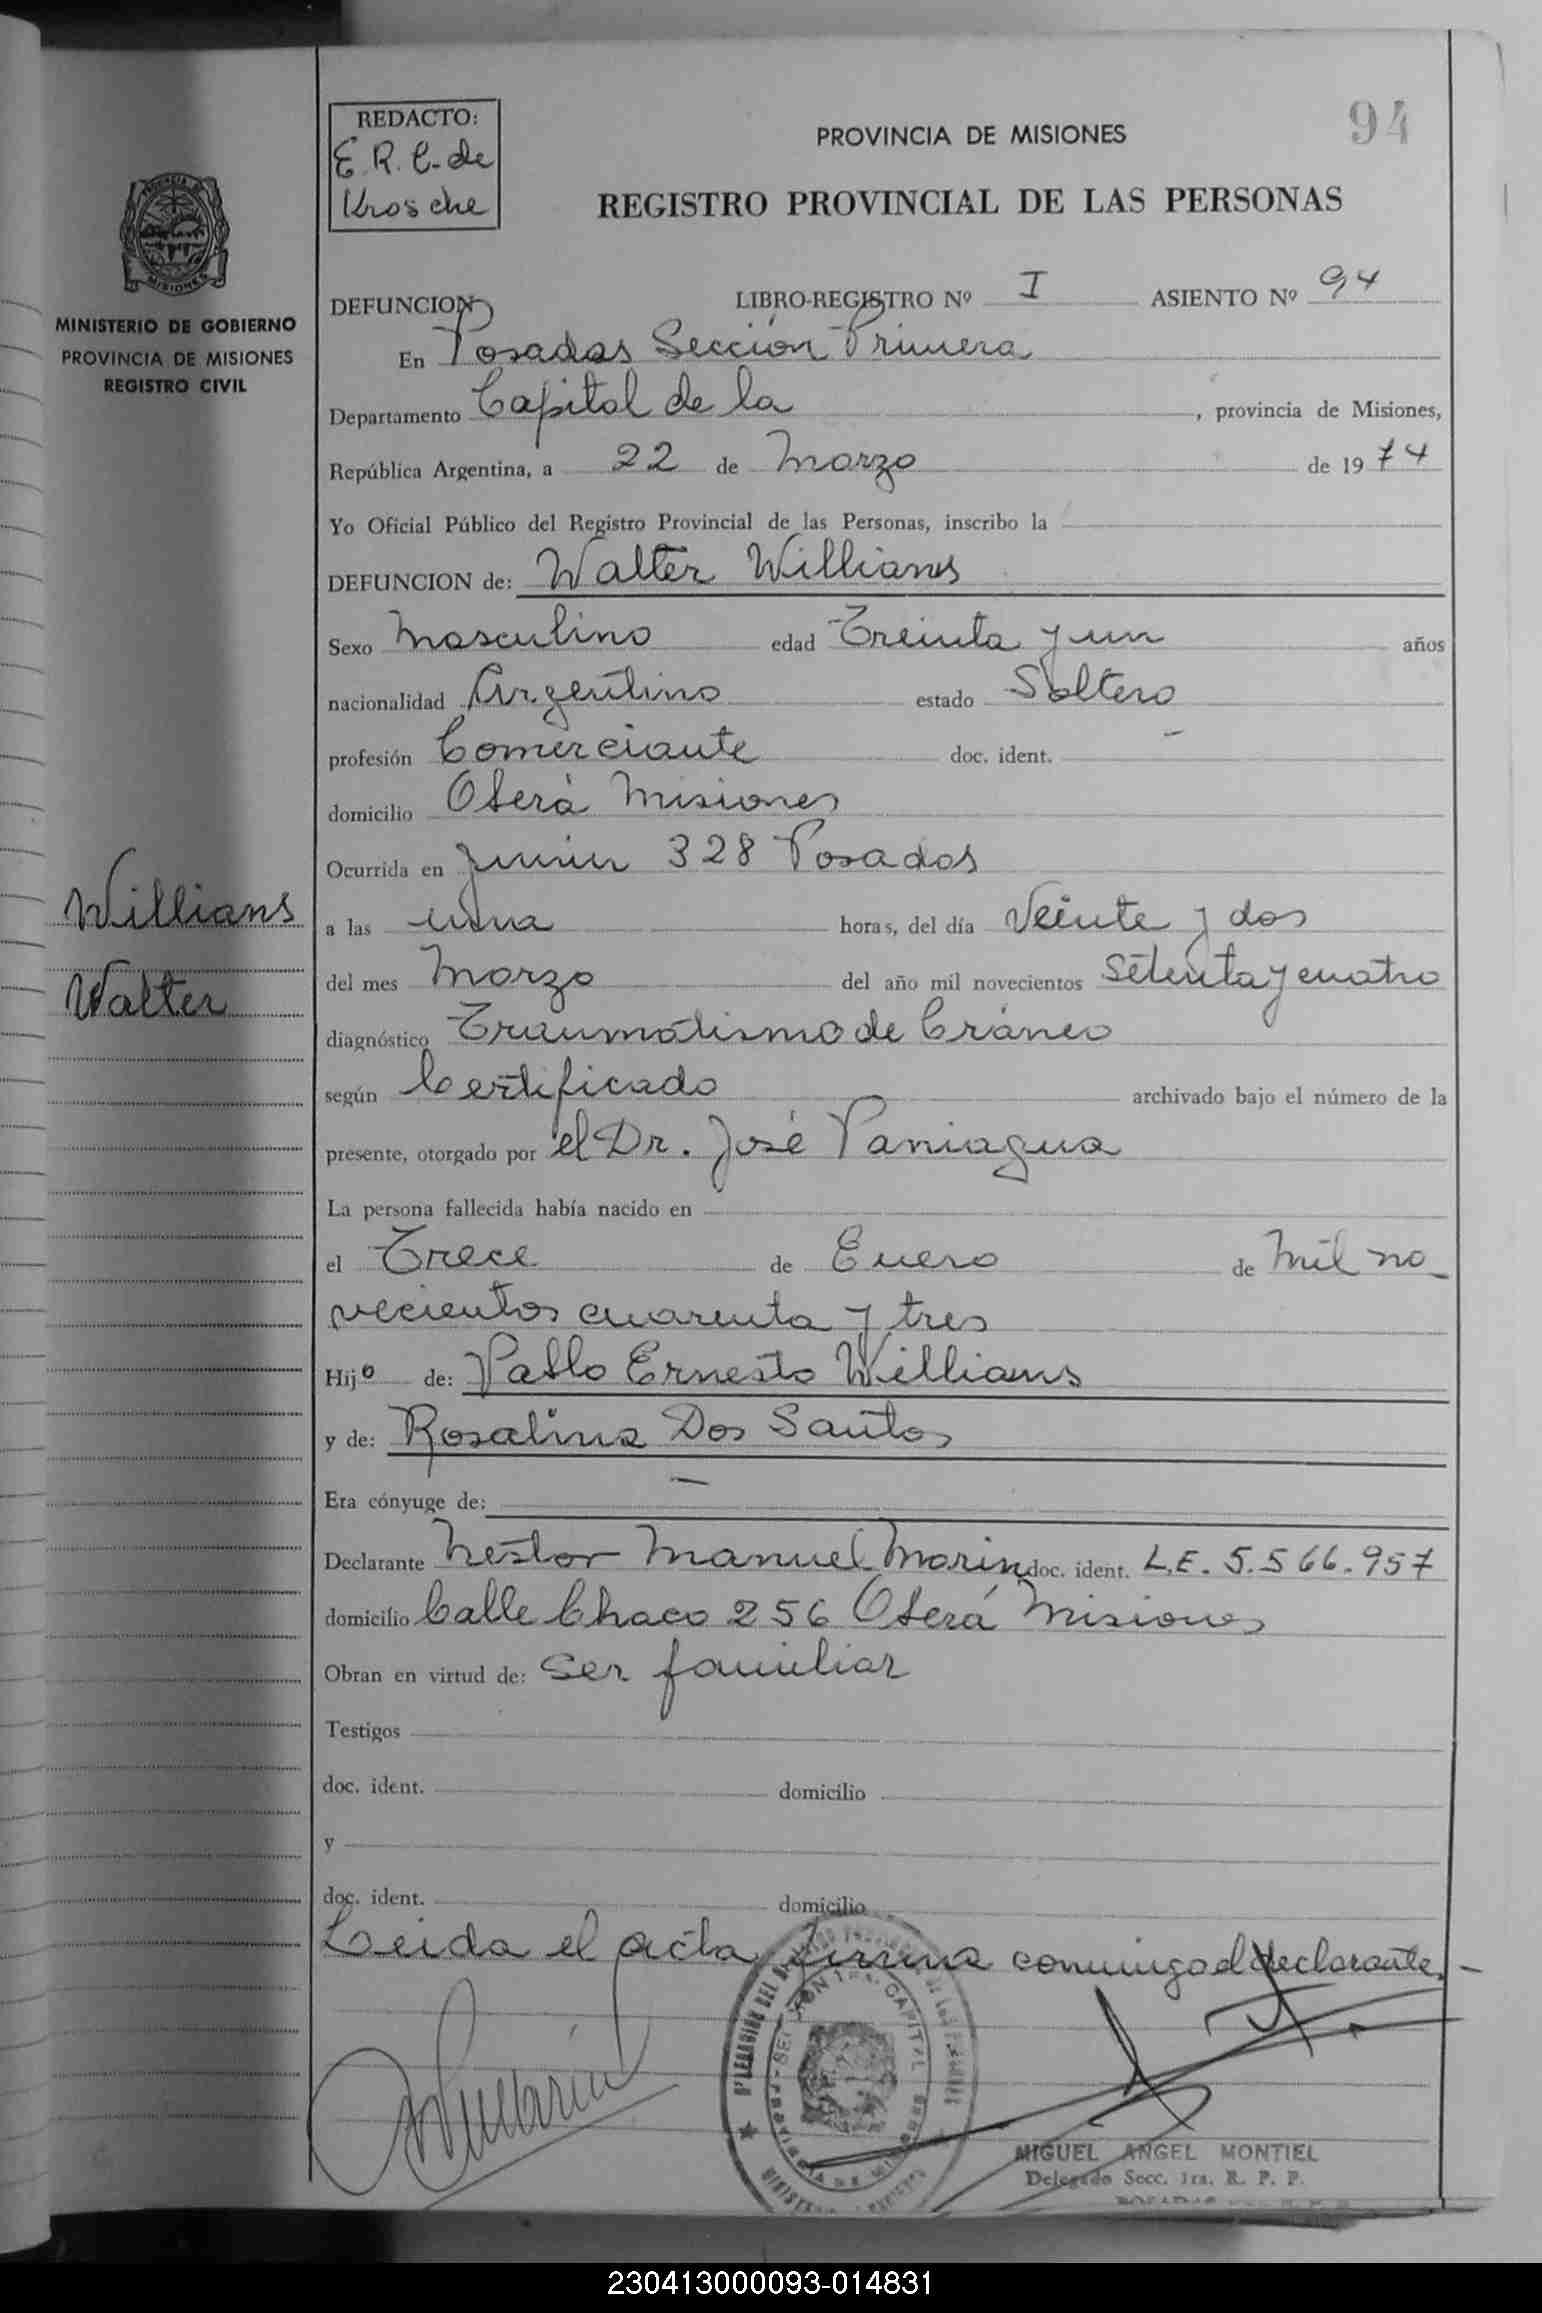 REDACTO:
E. R. C. de
Krosche
94
PROVINCIA DE MISIONES
REGISTRO PROVINCIAL DE LAS PERSONAS
MISIONES
MINISTERIO DE GOBIERNO
PROVINCIA DE MISIONES
REGISTRO CIVIL
DEFUNCION LIBRO-REGISTRO Nº I ASIENTO Nº 94
En Posadas Sección Primera
Departamento Capital de la , provincia de Misiones,
República Argentina, a 22 de Marzo de 1974
Yo Oficial Público del Registro Provincial de las Personas, inscribo la
DEFUNCION de: Walter Willians
Sexo Masculino edad Treinta y un años
nacionalidad Argentino estado Soltero
profesión Comerciante doc. ident. -
domicilio Oberá Misiones
Ocurrida en Junin 328 Posadas
Willians
Walter
a las una horas, del día Veinte y dos
del mes Marzo del año mil novecientos Setenta y cuatro
diagnóstico Traumatismo de Cráneo
según Certificado archivado bajo el número de la
presente, otorgado por el Dr. José Paniagua
La persona fallecida había nacido en
el Trece de Enero de Mil no_
vecientos cuarenta y tres
Hijo de: Pablo Ernesto Willians
y de: Rosalina Dos Santos
Era cónyuge de: -
Declarante Néstor Manuel Morin doc. ident. L.E. 5.566.957
domicilio Calle Chaco 256 Oberá Misiones
Obran en virtud de: Ser familiar
Testigos
doc. ident. domicilio
y
doc. ident. domicilio
Leida el acta firma conmigo el declarante.-
MIGUEL ANGEL MONTIEL
Delegado Secc. 1ra. R. P. P.
230413000093-014831